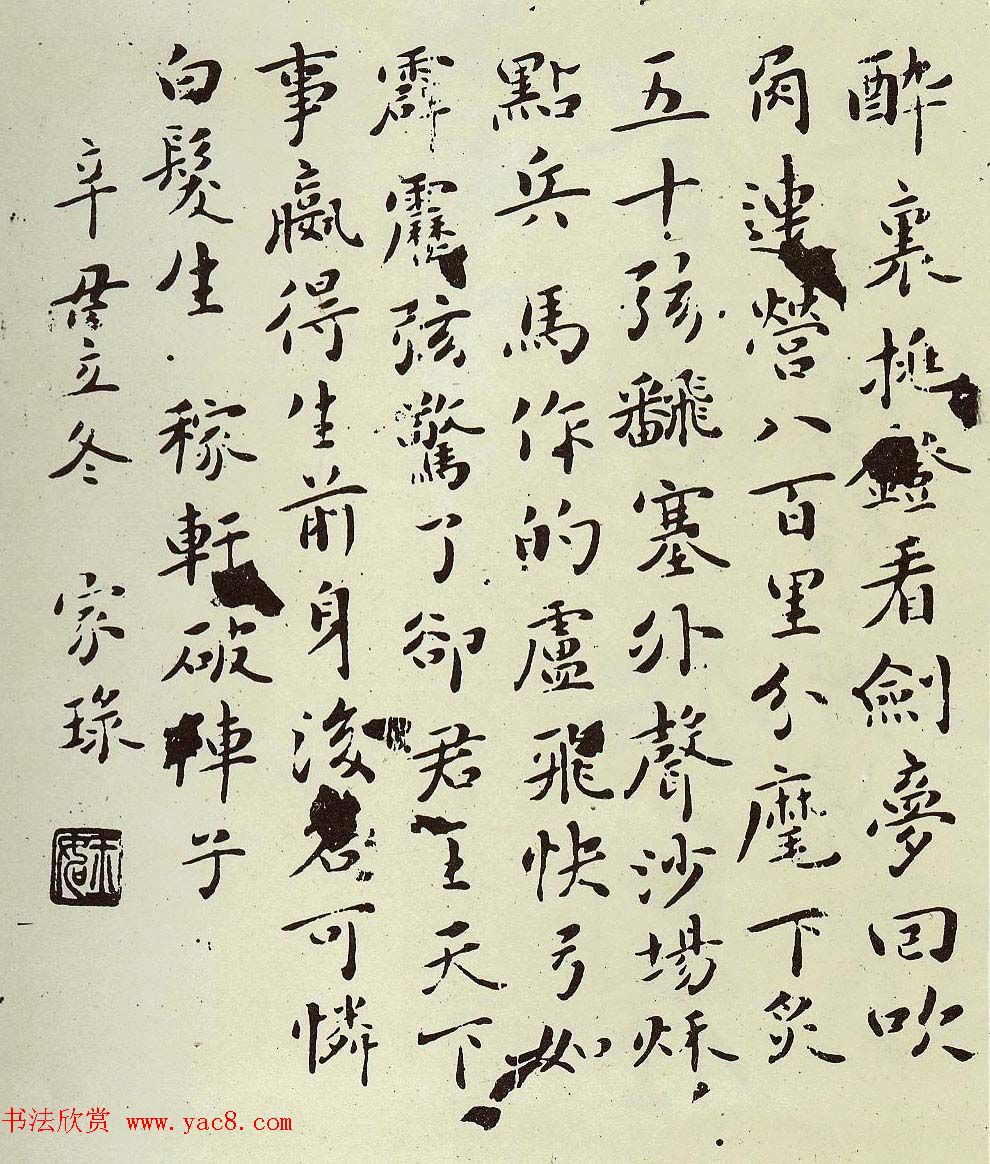 醉裏挑鐙看劍夢回吹
角連營八百里分麾下炙
五十弦飜塞外聲沙場秋
點兵馬作的盧飛快弓如
霹靂弦驚了卻君王天下
事贏得生前身後名可憐
白髮生 稼軒破陣子
辛 立冬 家琭
书法欣赏 www.yac8.com